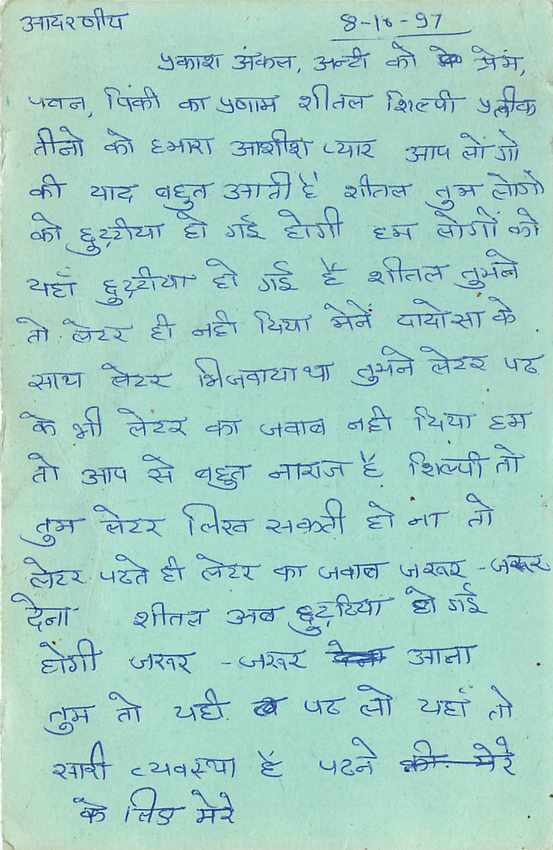 आदरणीय 8-10-97
प्रकाश अंकल, अन्टी को प्रेम,
पवन, पिंकी का प्रणाम शीतल शिल्पी प्रतीक
तीनो को हमारा आशीश प्यार आप लोगो
की याद बहुत आती है शीतल तुम लोगो
को छुट्टीया हो गई होगी हम लोगों को
यहाँ छुट्टीया हो गई है शीतल तुमने
तो लेटर ही नही दिया मेनें दायोसा के
साथ लेटर भिजवाया था तुमने लेटर पढ
के भी लेटर का जवाब नही दिया हम
तो आप से बहुत नाराज है शिल्पी तो
तुम लेटर लिख सकती हो ना तो
लेटर पढते ही लेटर का जवाब जरूर - जरूर
देना शीतल अब छुट्टिया हो गई
होगी जरुर - जरुर आना
तुम तो यही पढ लो यहाँ तो
सारी व्यवस्था है पढने की मेरे
के लिए मेरे